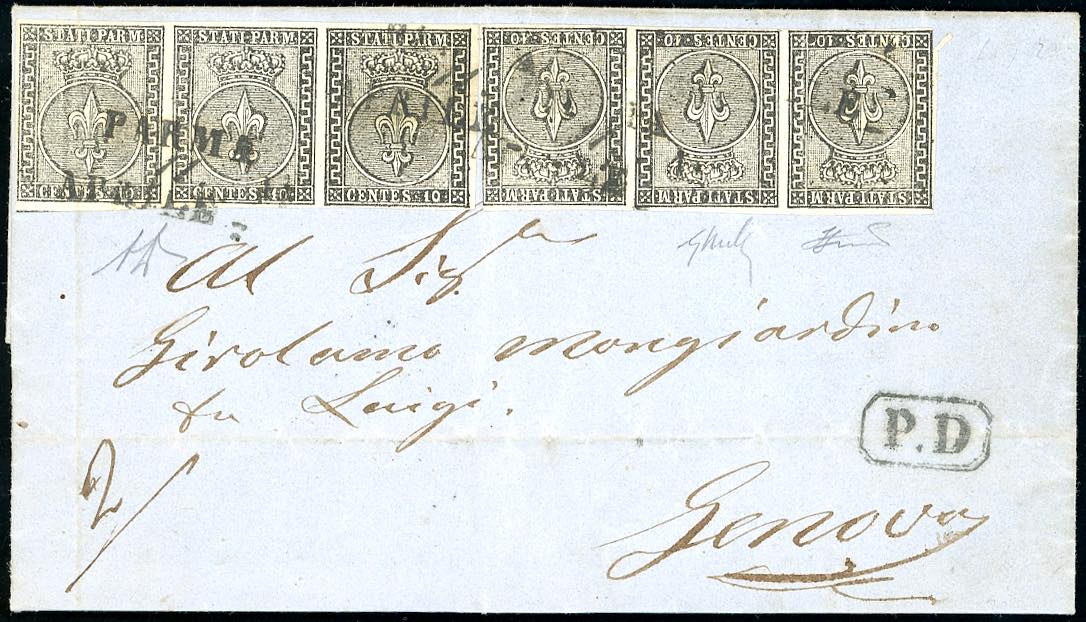 STATI PARM STATI PARM STATI PARM CENTES. 10. CENTES. 10. CENTES. 10.
CENTES. 10 CENTES. 10 CENTES. 10 STATI PARM STATI PARM STATI PARM
PARMA
APRILE
Al Sig.r
Girolamo Mongiardino
fu Luigi.
P.D
2
Genova